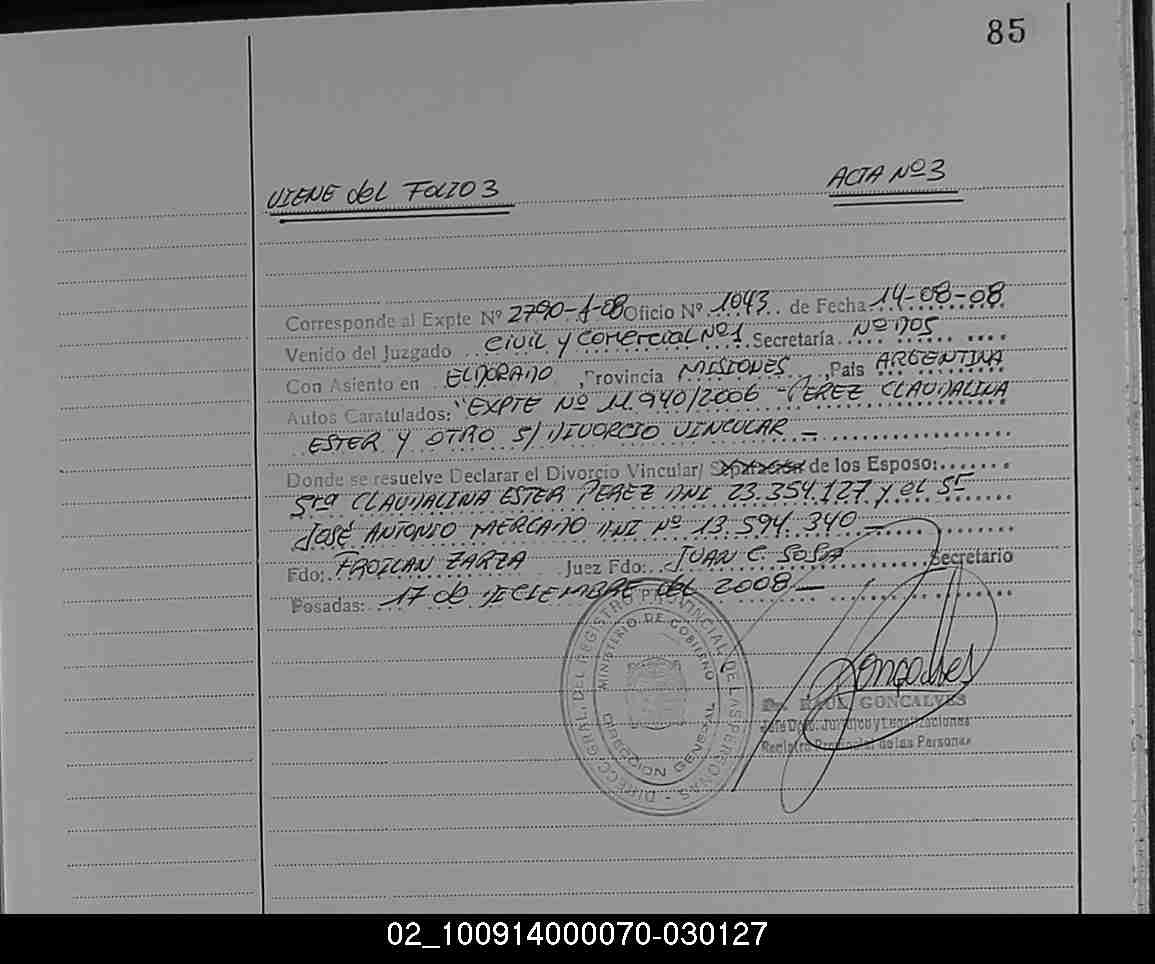 85
VIENE del FOLIO 3
ACTA Nº 3
Corresponde al Expte Nº 2790-J-08 Oficio Nº 1043 de Fecha 14-08-08
Venido del Juzgado CIVIL y COMERCIAL Nº 1 Secretaría Nº DOS
Con Asiento en ELDORADO, Provincia MISIONES, País ARGENTINA
Autos Caratulados: "EXPTE Nº 11.940/2006 - PEREZ CLAUDALINA
ESTER Y OTRO S/ DIVORCIO VINCULAR -
Donde se resuelve Declarar el Divorcio Vincular/ de los Esposo:
Sra CLAUDALINA ESTER PEREZ DNI 23.354.127 y el Sr
JOSÉ ANTONIO MERCADO DNI Nº 13.594.340 -
Fdo: FROILAN ZARZA Juez Fdo: JUAN C. SOSA Secretario
Posadas: 17 de DICIEMBRE del 2008 -
DIRECC. GRAL. DEL REGISTRO PROVINCIAL DE LAS PERSONAS
MINISTERIO DE GOBIERNO
DIRECCION GENERAL
Dr. RAUL GONCALVES
Jefe Dpto. Jurídico y Legalizaciones
Registro Provincial de las Personas
02_100914000070-030127